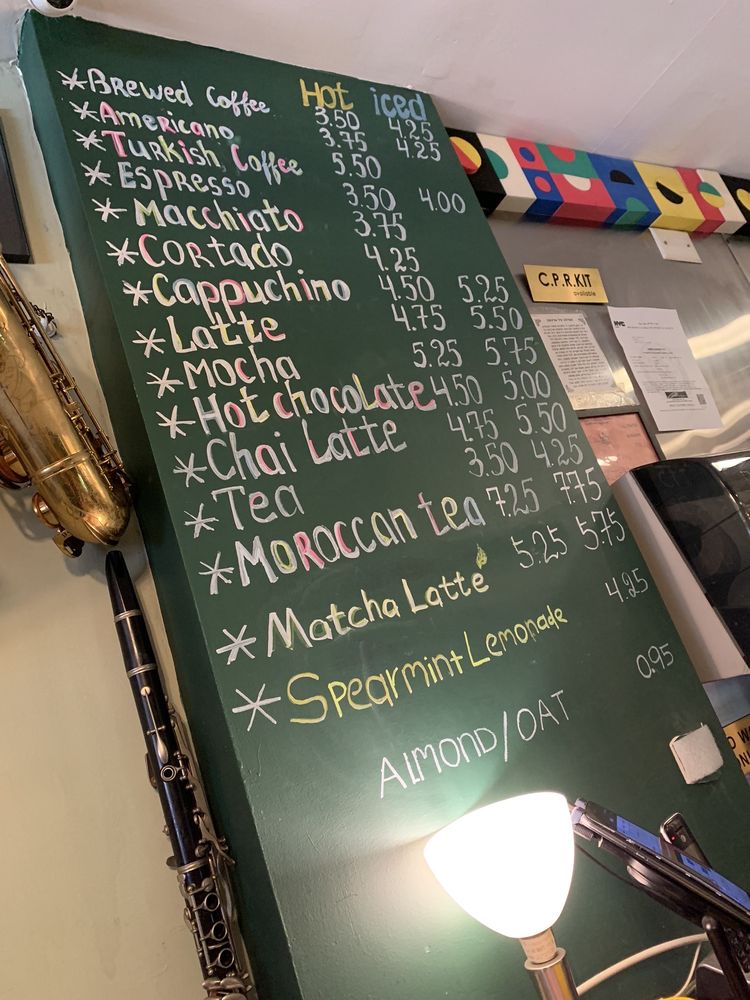 Hot iced
*Brewed Coffee 3.50 4.25
*Americano 3.75 4.25
*Turkish Coffee 5.50
*Espresso 3.50 4.00
*Macchiato 3.75
*Cortado 4.25
*Cappuchino 4.50 5.25
*Latte 4.75 5.50
*Mocha 5.25 5.75
*Hot chocolate 4.50 5.00
*Chai Latte 4.75 5.50
*Tea 3.50 4.25
*Moroccan tea 7.25 7.75
*Matcha Latte 5.25 5.75
*Spearmint Lemonade 4.25
ALMOND/OAT 0.95
C.P.R.KIT
available
NYC